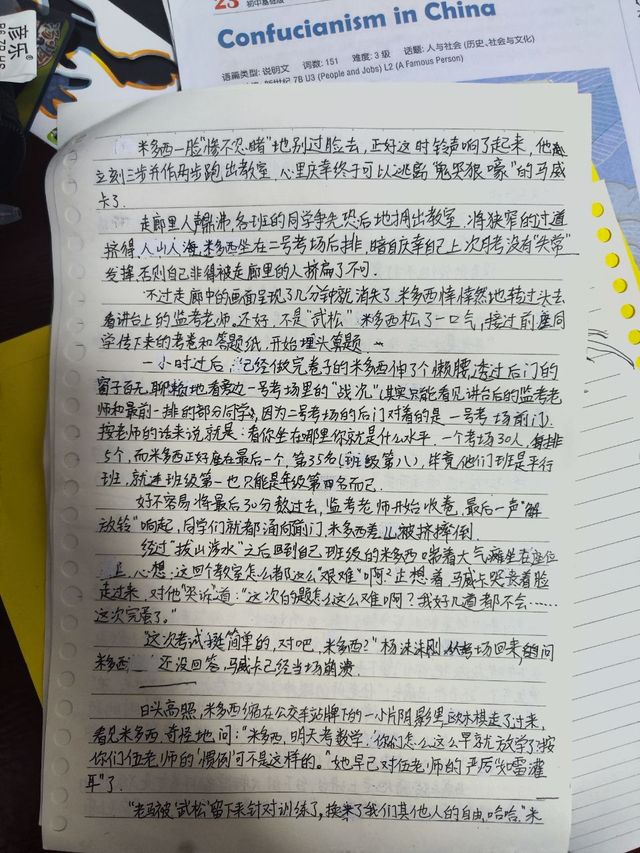 23 初中基础版
Confucianism in China
语篇类型: 说明文 词数: 151 难度: 3 级 话题: 人与社会 (历史、社会与文化)
7B U3 (People and Jobs) L2 (A Famous Person)
米多西一脸“惨不忍睹”地别过脸去，正好这时铃声响了起来，他
立刻三步并作两步跑出教室，心里庆幸终于可以逃离“鬼哭狼嚎”的马威
卡了.
走廊里人声鼎沸，各班的同学争先恐后地拥出教室，将狭窄的过道
挤得人山人海，米多西坐在二号考场后排，暗自庆幸自己上次月考没有“失常”
发挥，否则自己非得被走廊里的人挤扁了不可.
不过走廊中的画面呈现了几分钟就消失了，米多西悻悻然地转过头去
看讲台上的监考老师。还好，不是“武松”，米多西松了一口气，接过前座同
学传下来的考卷和答题纸，开始埋头算题.
一小时过后，已经做完卷子的米多西伸了个懒腰，透过后门的
窗子百无聊赖地看旁边一号考场里的“战况”(其实只能看见讲台后的监考老
师和最前一排的部分同学，因为二号考场的后门对着的是一号考场前门).
按老师的话来说就是：看你坐在哪里你就是什么水平，一个考场30人，每排
5个，而米多西正好座在最后一个，第35名(班级第八)，毕竟他们班是平行
班，就连班级第一也只能是年级第四名而已.
好不容易将最后30分熬过去，监考老师开始收卷，最后一声“解
放铃”响起，同学们就都涌向前门，米多西差点被挤摔倒.
经过“拔山涉水”之后回到自己班级的米多西喘着大气瘫坐在座位
上，心想：这回个教室怎么都这么“艰难”啊？正想着，马威卡哭丧着脸
走过来，对他“哭诉”道：“这次的题怎么这么难啊？我好几道都不会……
这次完蛋了。”
“这次考试挺简单的，对吧，米多西？”杨沫沫刚从考场回来，就问
米多西 还没回答，马威卡已经当场崩溃.
日头高照，米多西缩在公交车站牌下的一小片阴影里，欧木棋走了过来，
看见米多西，奇怪地问：“米多西，明天考数学，你们怎么这么早就放学了？按
你们伍老师的‘惯例’可不是这样的。”她早已对伍老师的严厉“如雷灌
耳”了.
“老马被‘武松’留下来针对训练了，换来了我们其他人的自由，哈哈.”米